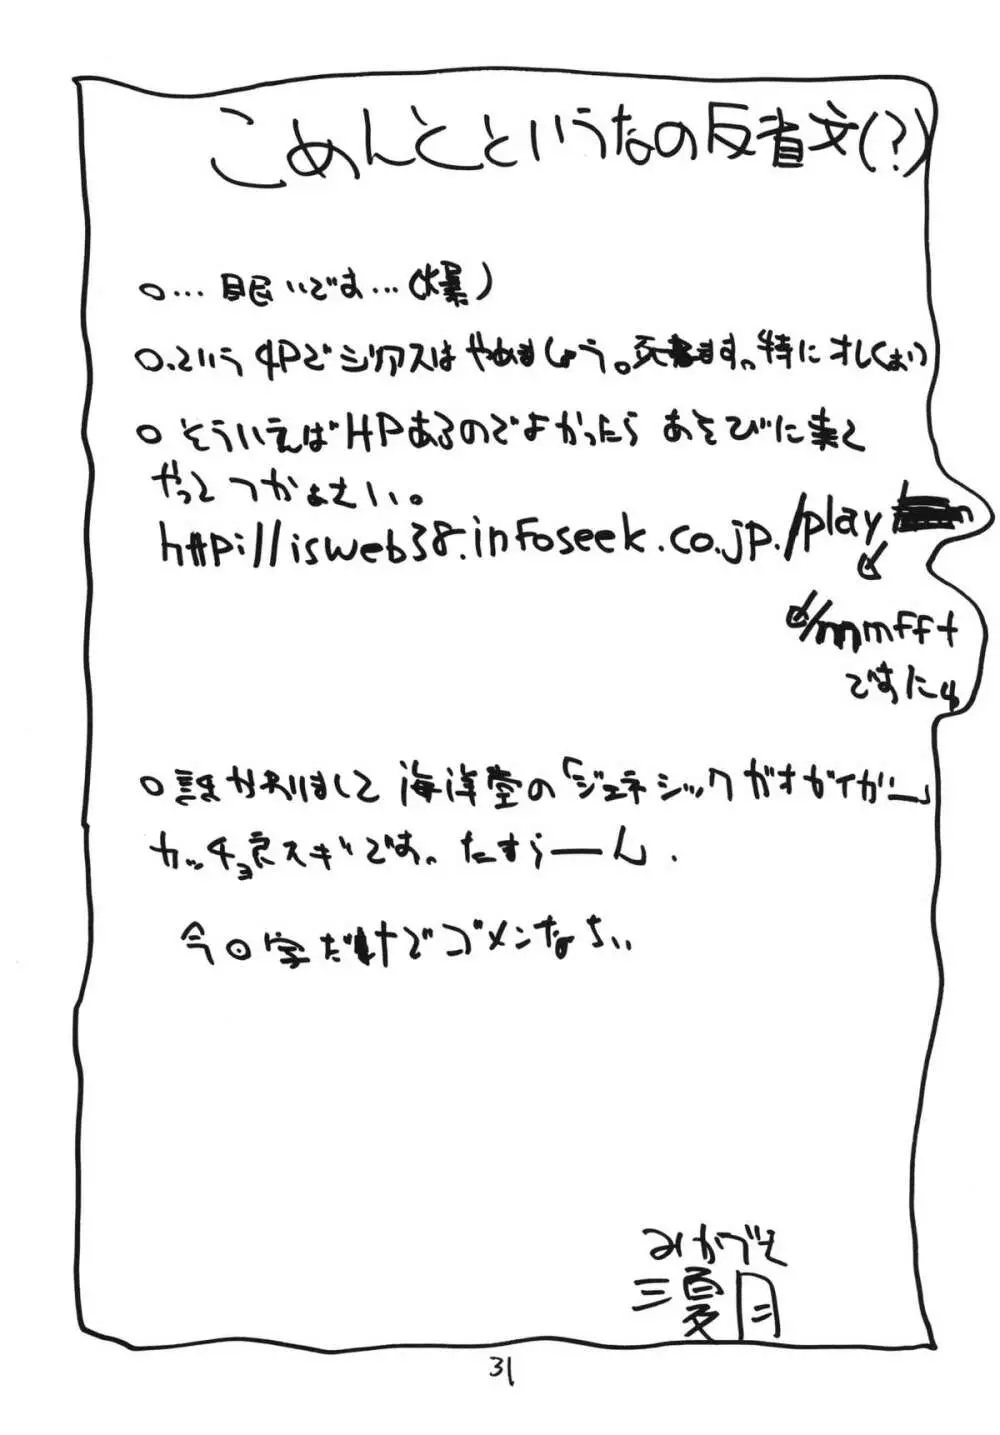 こめんとというなの反省文(?)
○…眠いです…(爆)
○.という4Pでシリアスはやめましょう。死ねます。特にオレくおい
○そういえばHPあるのでよかったら あそびに来て
やって つかぁさい。
http://isweb38.infoseek.co.jp./play
d/mmfft
ですにゅ
○誰か 海洋堂の「ジェネシックガオガイガー」
カッチョ良スギです。たすらーん.
今回字だけでゴメンなちぃ
みかづき
三夏月
31